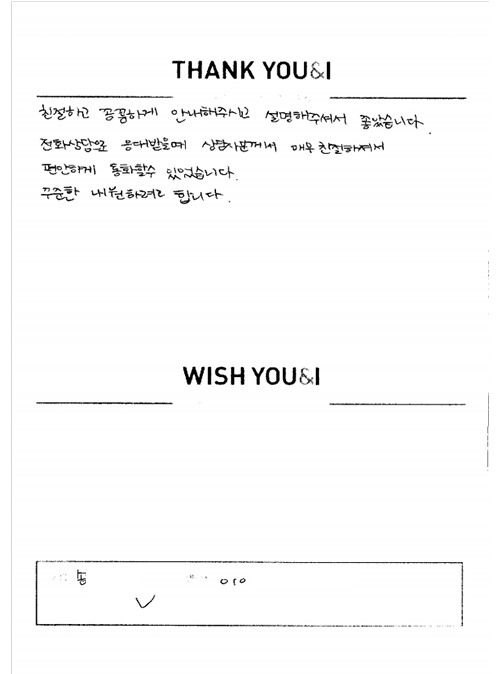 THANK YOU&I
친절하고 꼼꼼하게 안내해주시고 설명해주셔서 좋았습니다.
전화상담으로 응대받을때 상담사분께서 매우 친절하셔서
편안하게 통화할수 있었습니다.
꾸준한 내원하려고 합니다.
WISH YOU&I
010